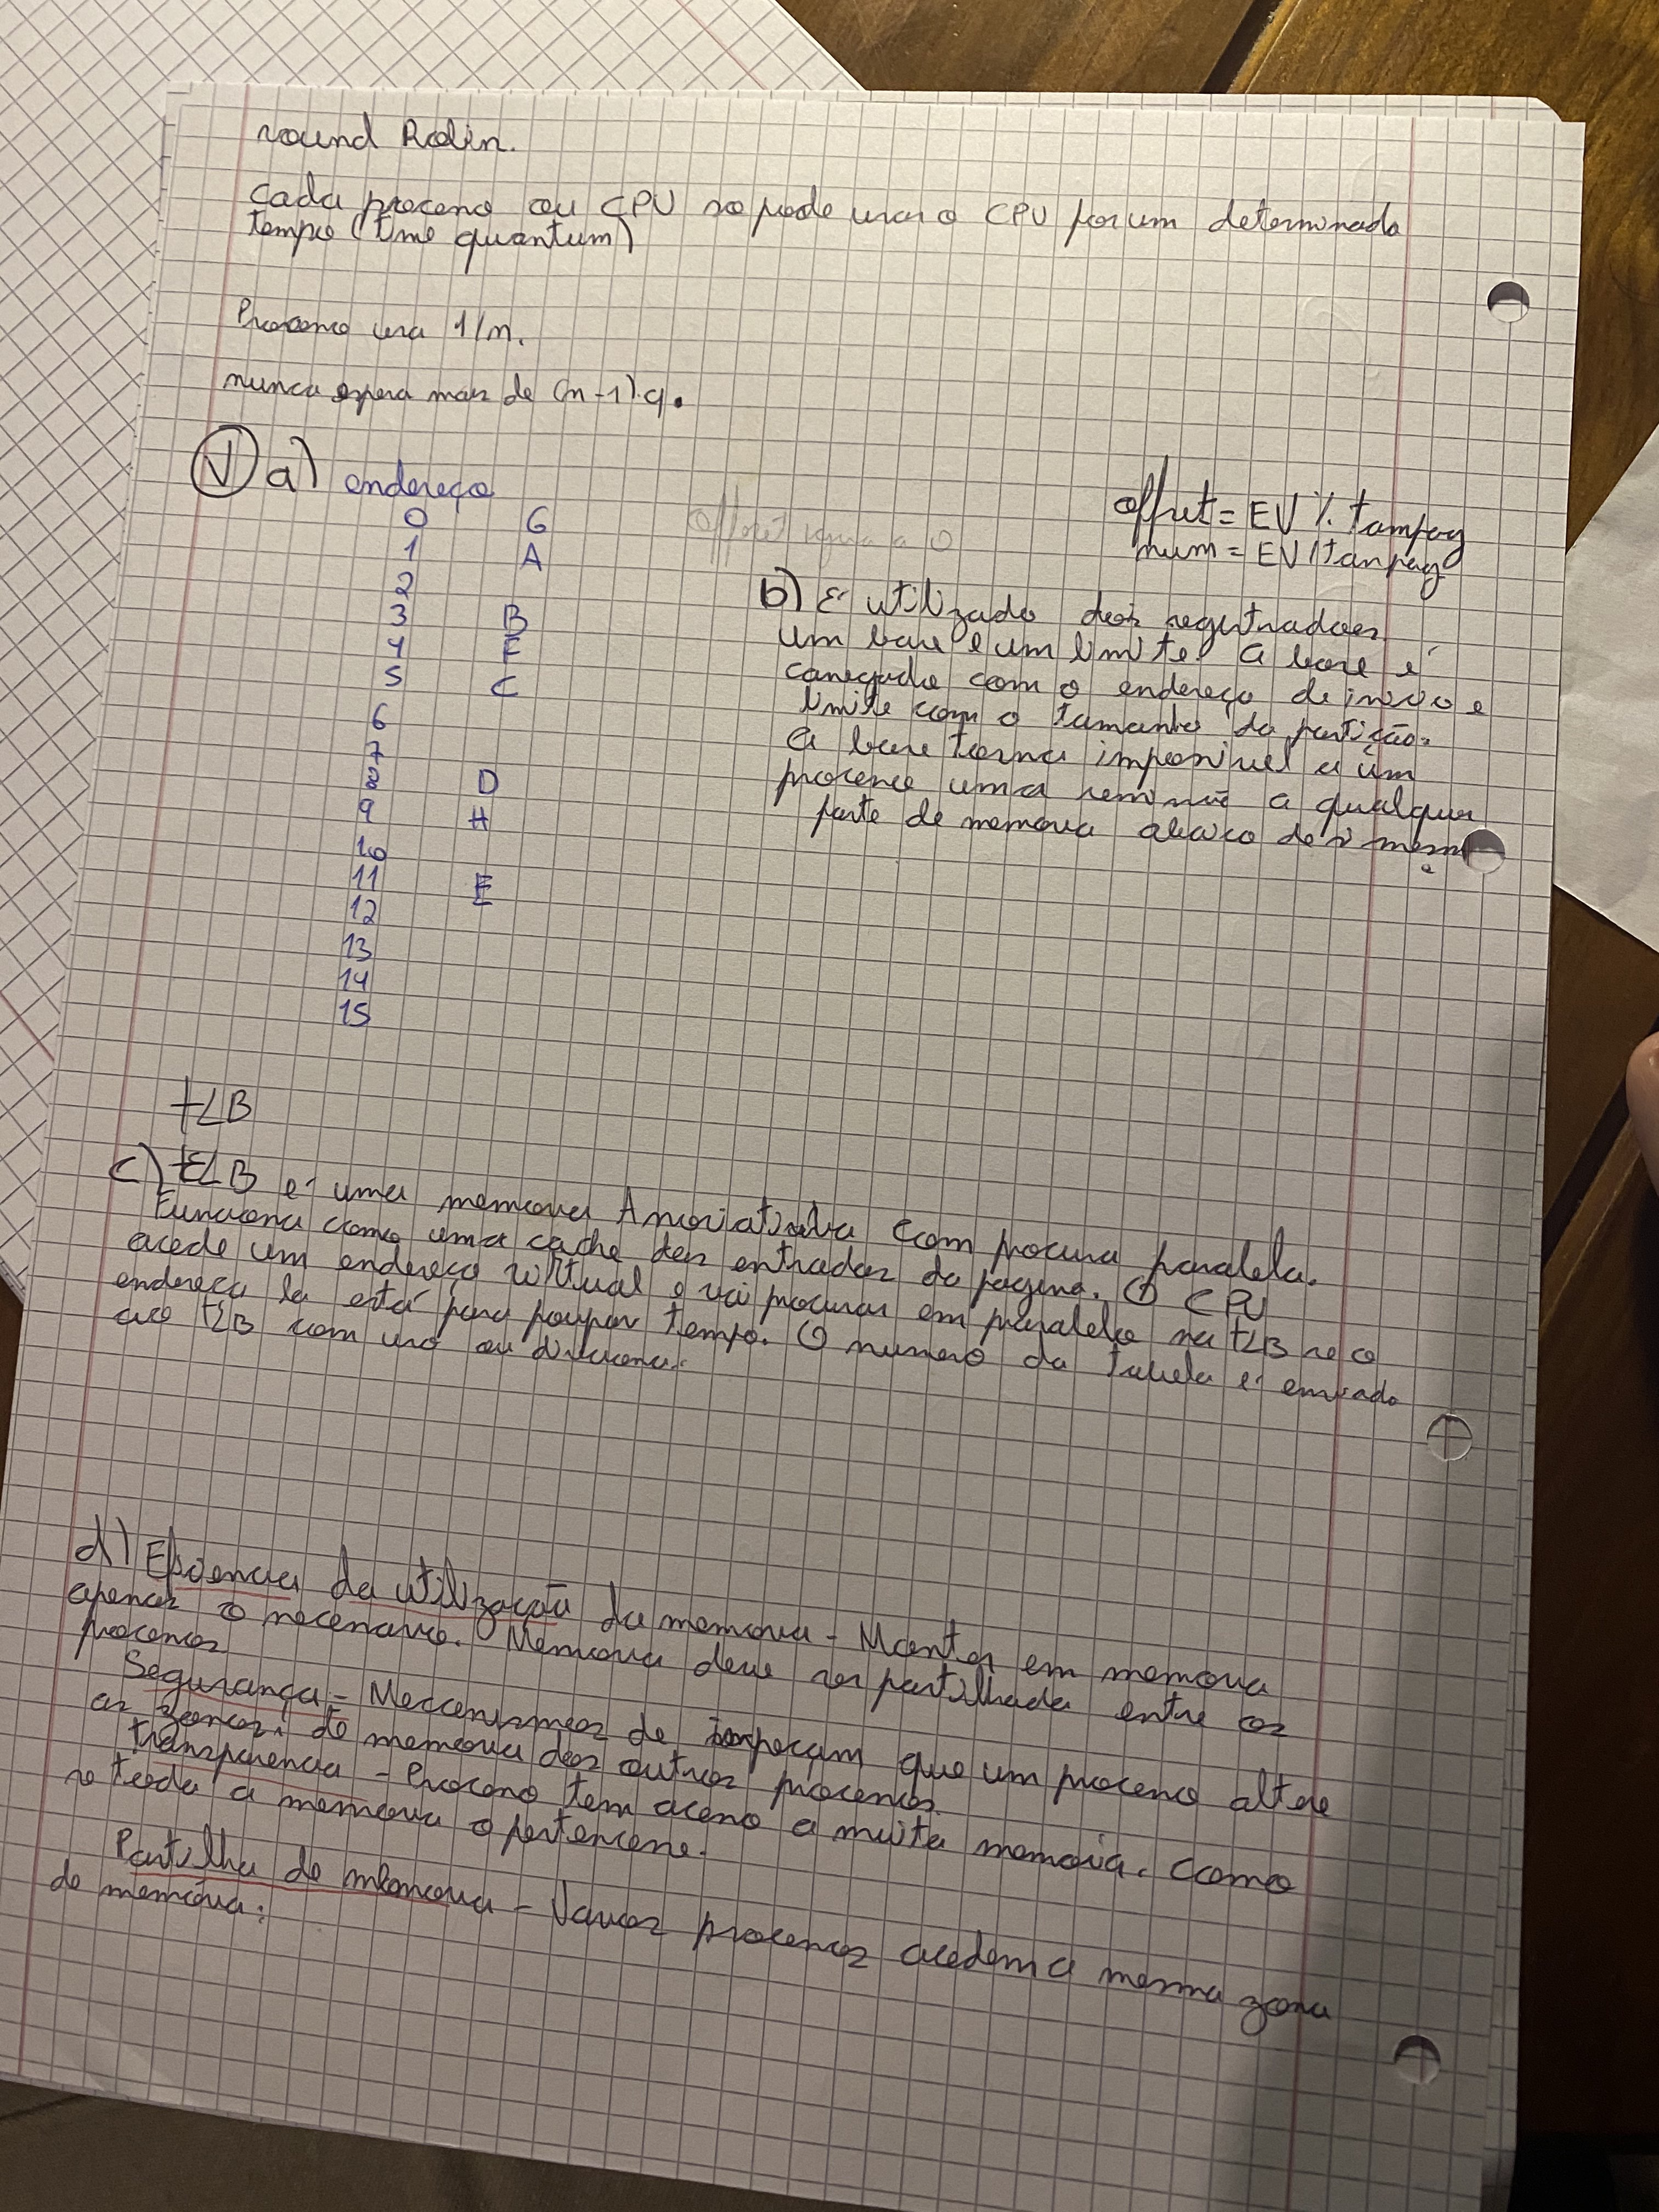 round Robin.
cada processo ou CPU so pode usar o CPU por um determinado
tempo (time quantum)
Processo usa 1/n.
nunca espera mais de (n-1).q.
V a) endereço
0 G
1 A
2
3 B
4 F
5 C
6
7
8 D
9 H
10
11 E
12
13
14
15
Offset igual a 0
offset = EV % tampag
num = EV/tampag
b) É utilizado dois registradores.
um base e um limite. A base é
carregada com o endereço de inicio e
limite com o tamanho da partição.
A base torna impossivel a um
processo uma a qualquer
parte de memoria abaixo de si mesmo
TLB
c) TLB é uma memoria Associativa com procura paralela.
Funciona como uma cache das entradas da pagina. O CPU
acede um endereço virtual e vai procurar em paralelo na TLB se o
endereço la está para poupar tempo. O numero da tabela é enviado
ao TLB com uso ou diciona.
d) Eficiencia da utilização da memoria - Manter em memoria
apenas o necessario. Memoria deve ser partilhada entre os
processos
Segurança - Meccanismos de impeçam que um processo altere
as zonas de memoria dos outros processos.
transparencia - Processo tem acesso a muita memoria. Como
se toda a memoria o pertencesse.
Partilha de memoria - Varios processos acedem a mesma zona
de memória.